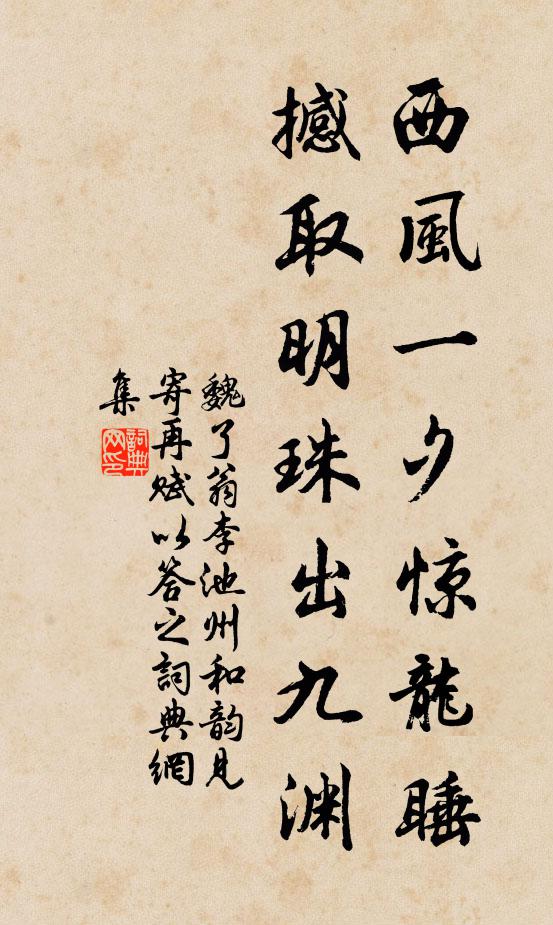 西風一夕惊龍睡
撼取明珠出九渊
魏了翁李池州和韵見
寄再赋以答之詞典網
集
詞典
网印